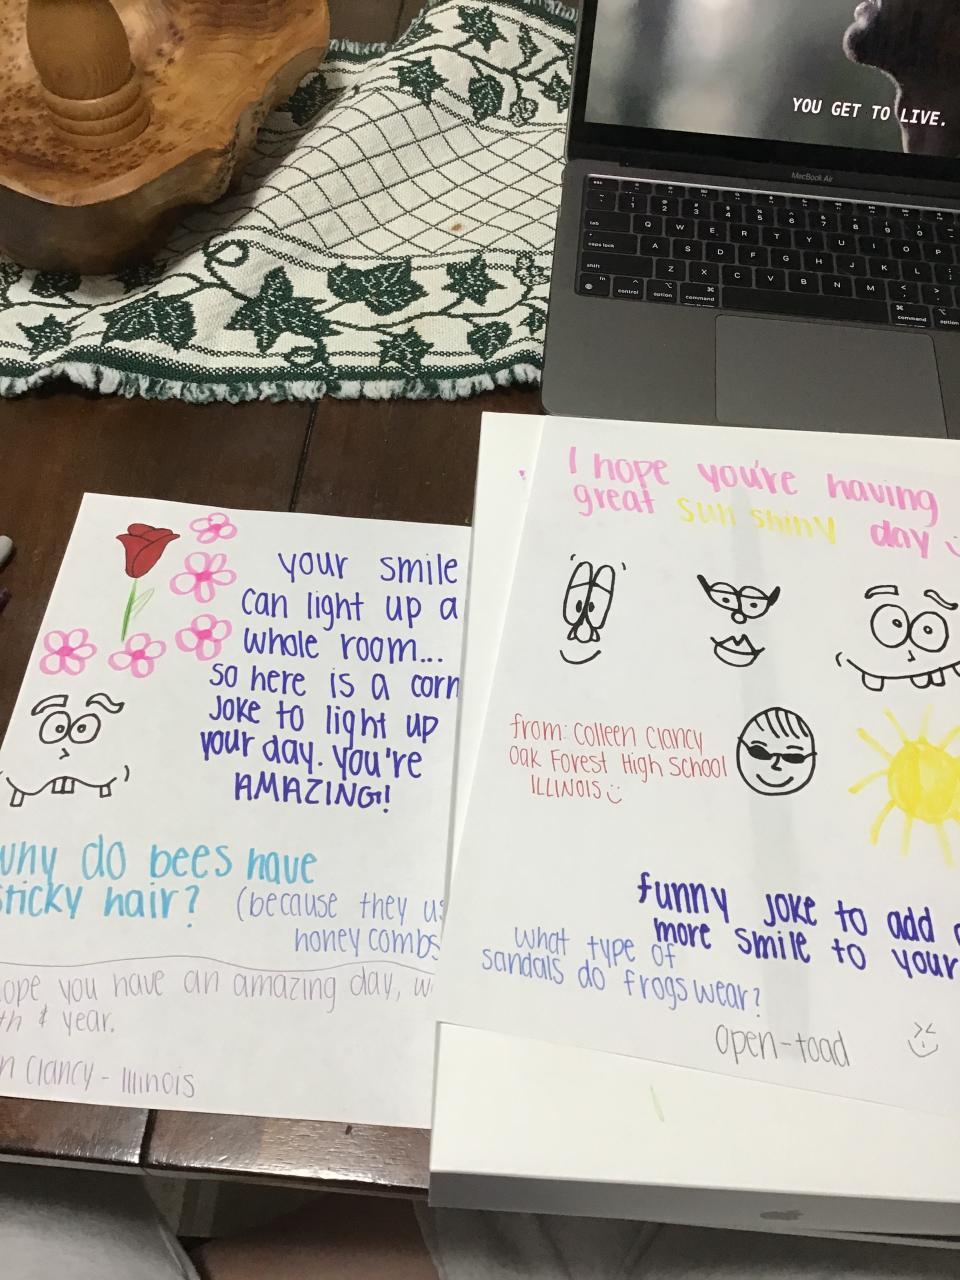 YOU GET TO LIVE.
MacBook Air
esc
! 1 @ 2 # 3 $ 4 % 5 ^ 6 & 7 * 8 ( 9 ) 0
tab Q W E R T Y U I O P
caps lock A S D F G H J K L
shift Z X C V B N M < , > .
fn control option command command option
your smile
can light up a
whole room...
so here is a corn
joke to light up
your day. you're
AMAZING!
why do bees have
sticky hair? (because they us
honey combs
ope you have an amazing day, w
th & year.
n Clancy - Illinois
I hope you're having
great sun shiny day
from: Colleen Clancy
Oak Forest High School
ILLINOIS
funny joke to add
more smile to your
what type of
sandals do frogs wear?
open-toad